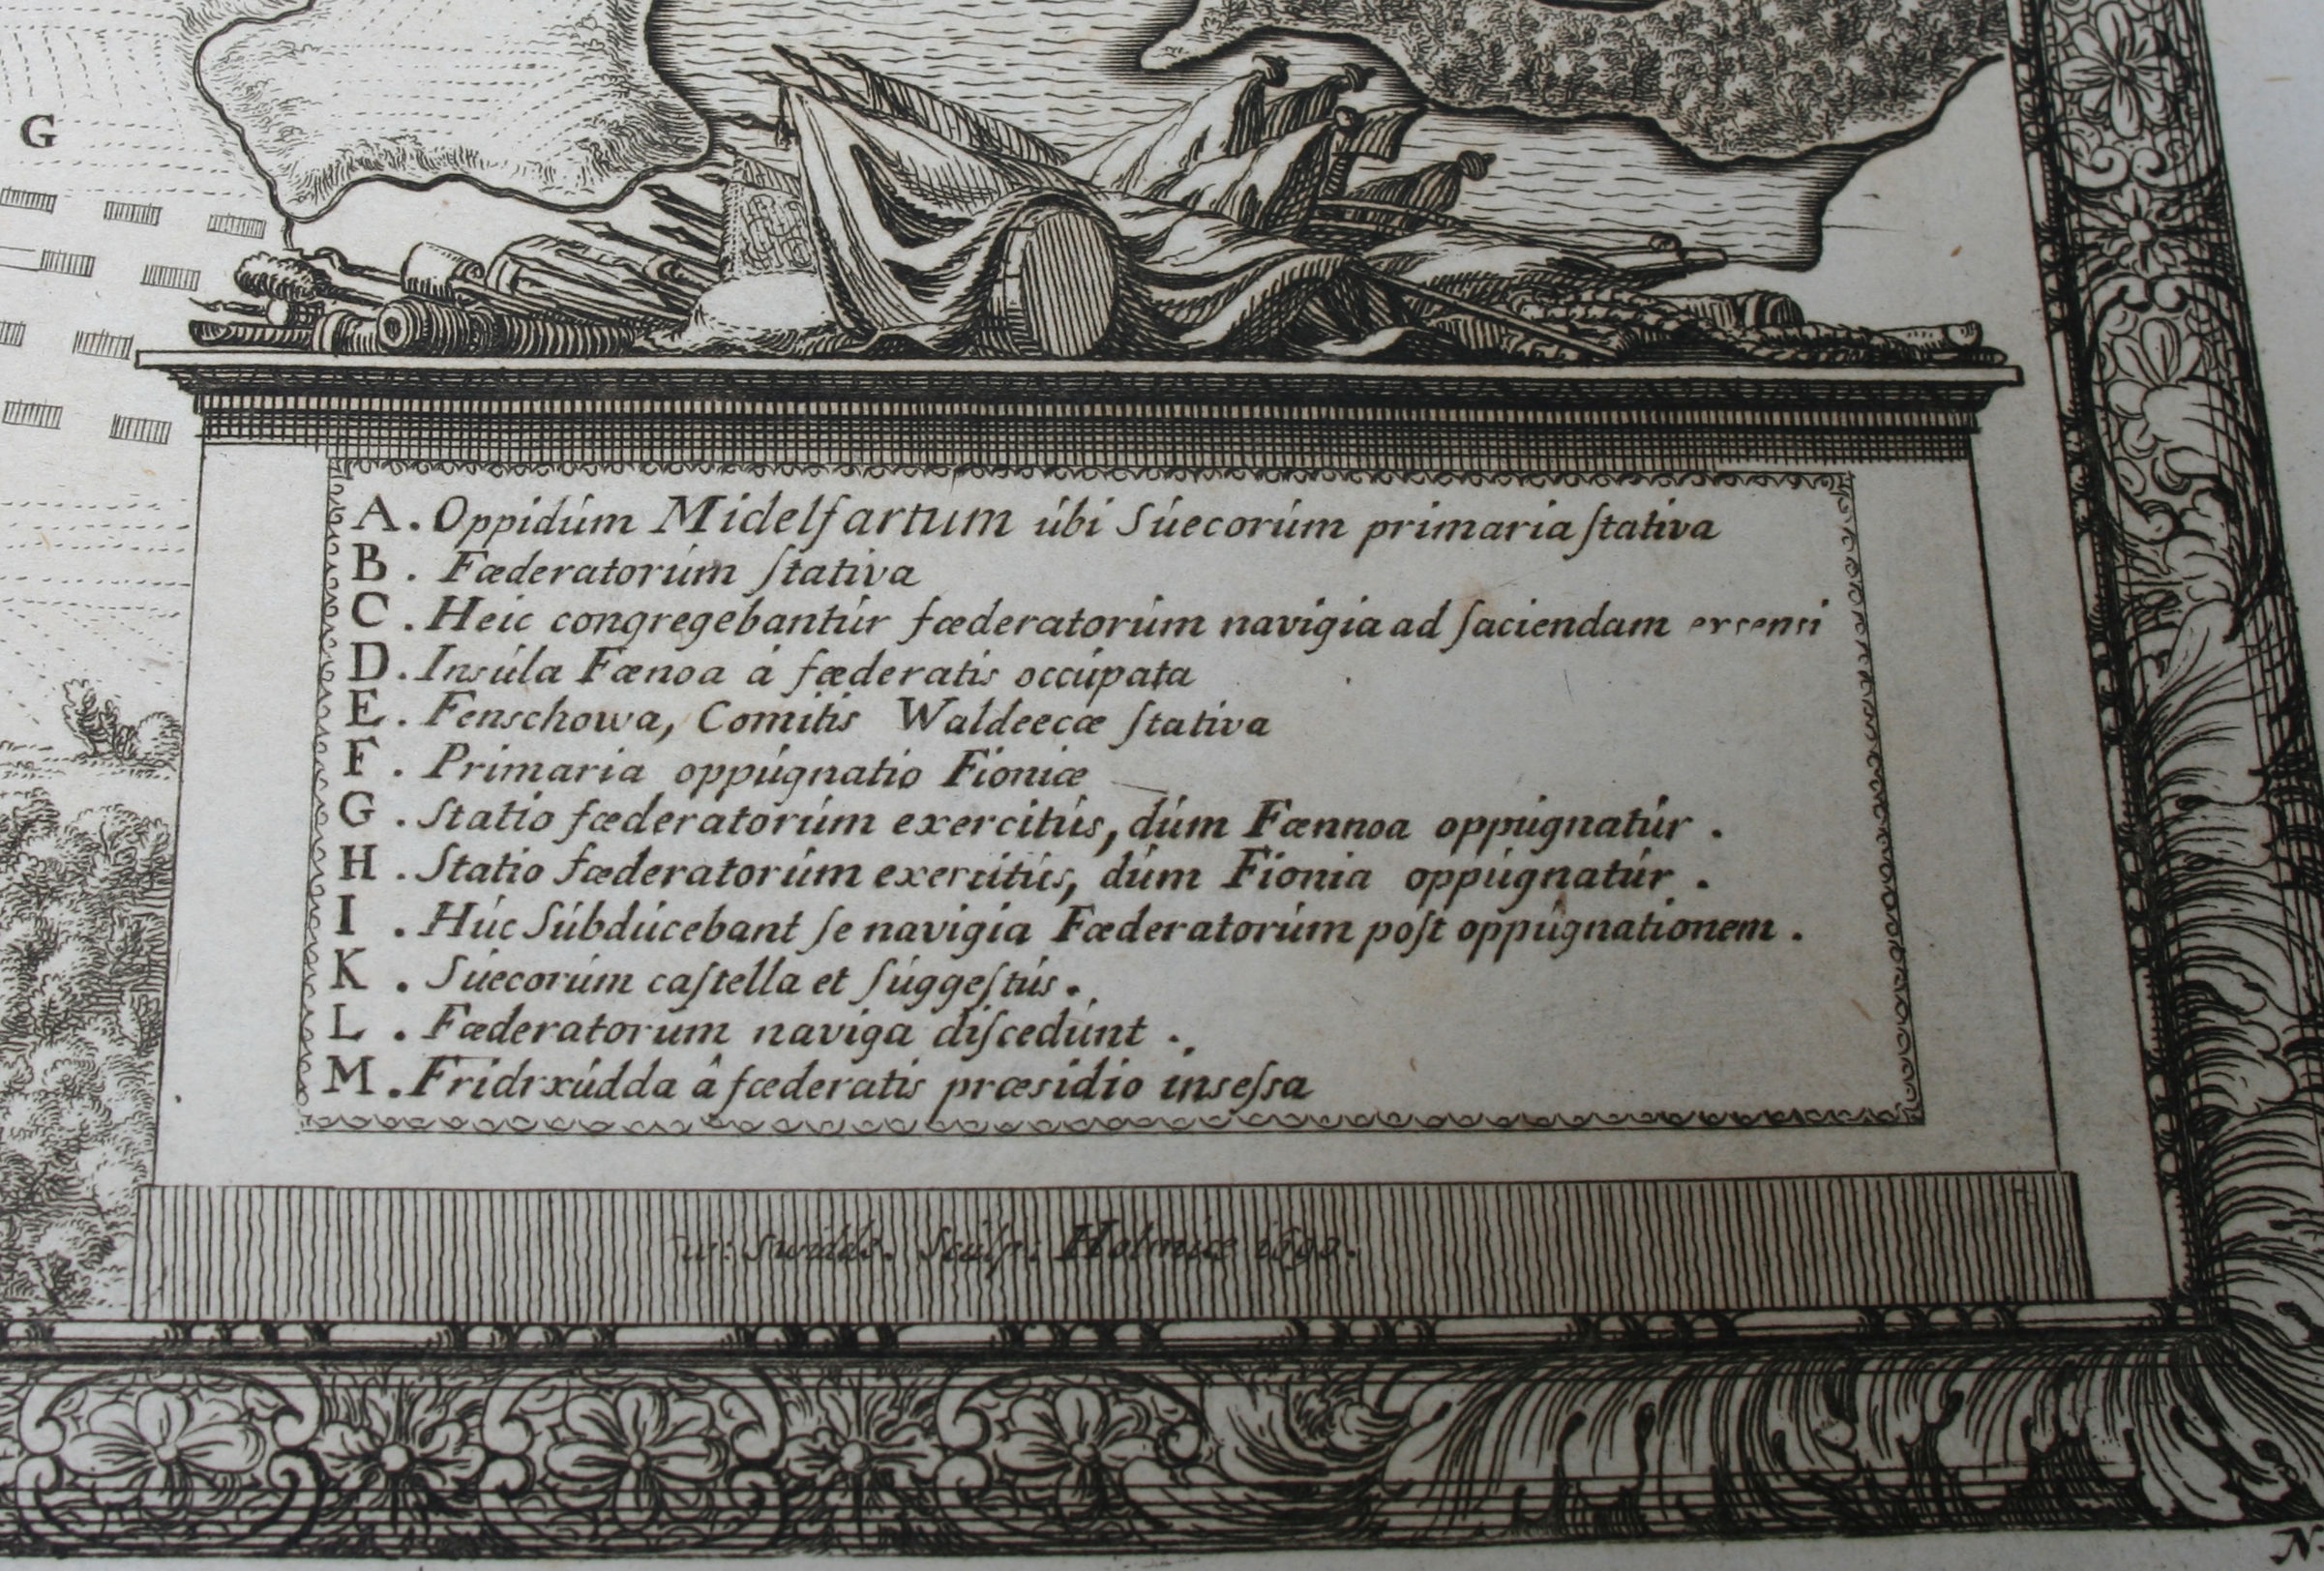 G
A. Oppidúm Midelfartum úbi Súecorúm primaria ſtativa
B. Fæderatorúm ſtativa
C. Heic congregebantúr fæderatorúm navigia ad faciendam
D. Insúla Fænoa á fæderatis occúpata
E. Fenschowa, Comitis Waldeecæ ſtativa
F. Primaria oppúgnatio Fioniæ
G. Statio fæderatorúm exercitús, dúm Fænnoa oppúgnatúr.
H. Statio fæderatorúm exercitús, dúm Fionia oppúgnatúr.
I. Húc Súbdúcebant ſe navigia Fæderatorúm poſt oppúgnationem.
K. Súecorúm caſtella et ſúggeſtús.
L. Fæderatorúm naviga diſcedúnt.
M. Fridrxúdda â fæderatis præsidio inseſsa
w: Swidde. Sculp: Holmiæ 1690.
N